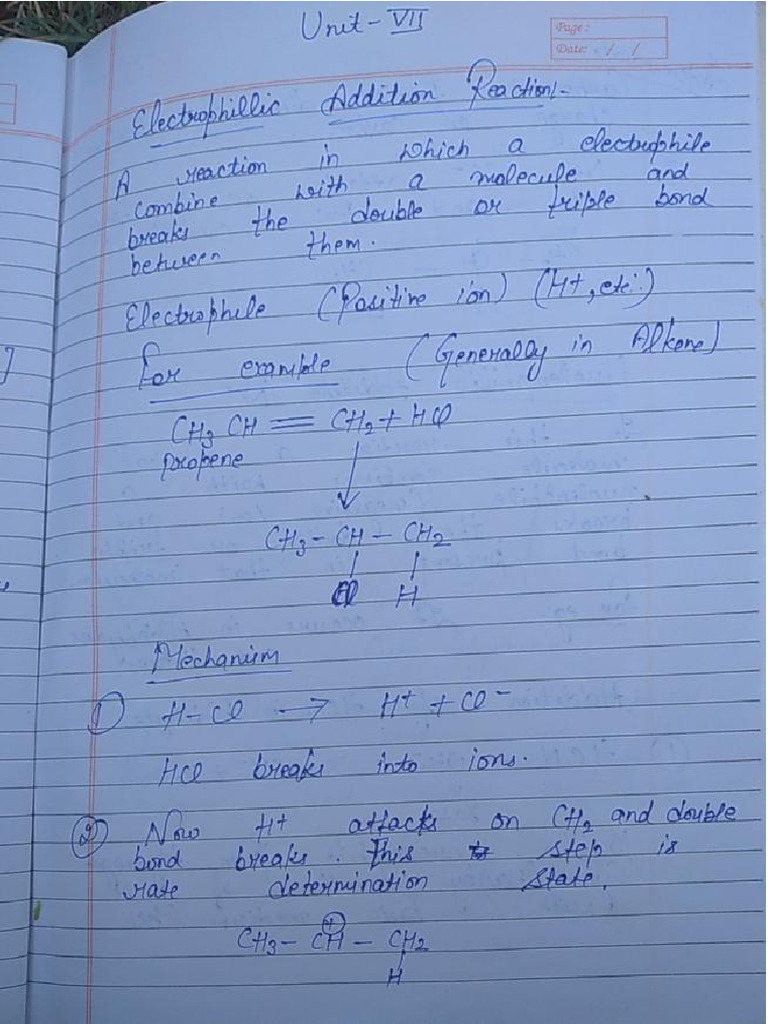 Unit - VII
Page:
Date: / /
Electrophillic Addition Reaction:-
A reaction in which a electrophile
combine with a molecule and
breaks the double or triple bond
between them.
Electrophile (Positive ion) (H+, etc.)
For example (Generally in Alkene)
CH3 CH = CH2 + HCl
propene
CH3 - CH - CH2
Cl H
Mechanism
① H - Cl → H+ + Cl-
HCl breaks into ions.
② Now H+ attacks on CH2 and double
bond breaks. This step is
rate determination state.
CH3 - CH - CH2
+
H